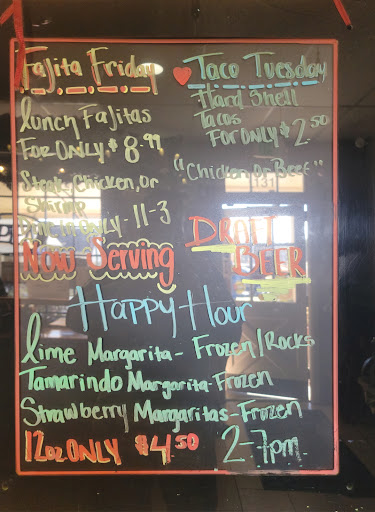 Fajita Friday
lunch Fajitas
For only $8.99
Steak, Chicken, or
Shrimp
Dine in only - 11-3
Taco Tuesday
Hard Shell
Tacos
For only $2.50
"Chicken or Beef"
Now Serving
DRAFT
BEER
Happy Hour
lime Margarita - Frozen/Rocks
Tamarindo Margarita - Frozen
Strawberry Margaritas - Frozen
12oz ONLY $4.50 2-7pm